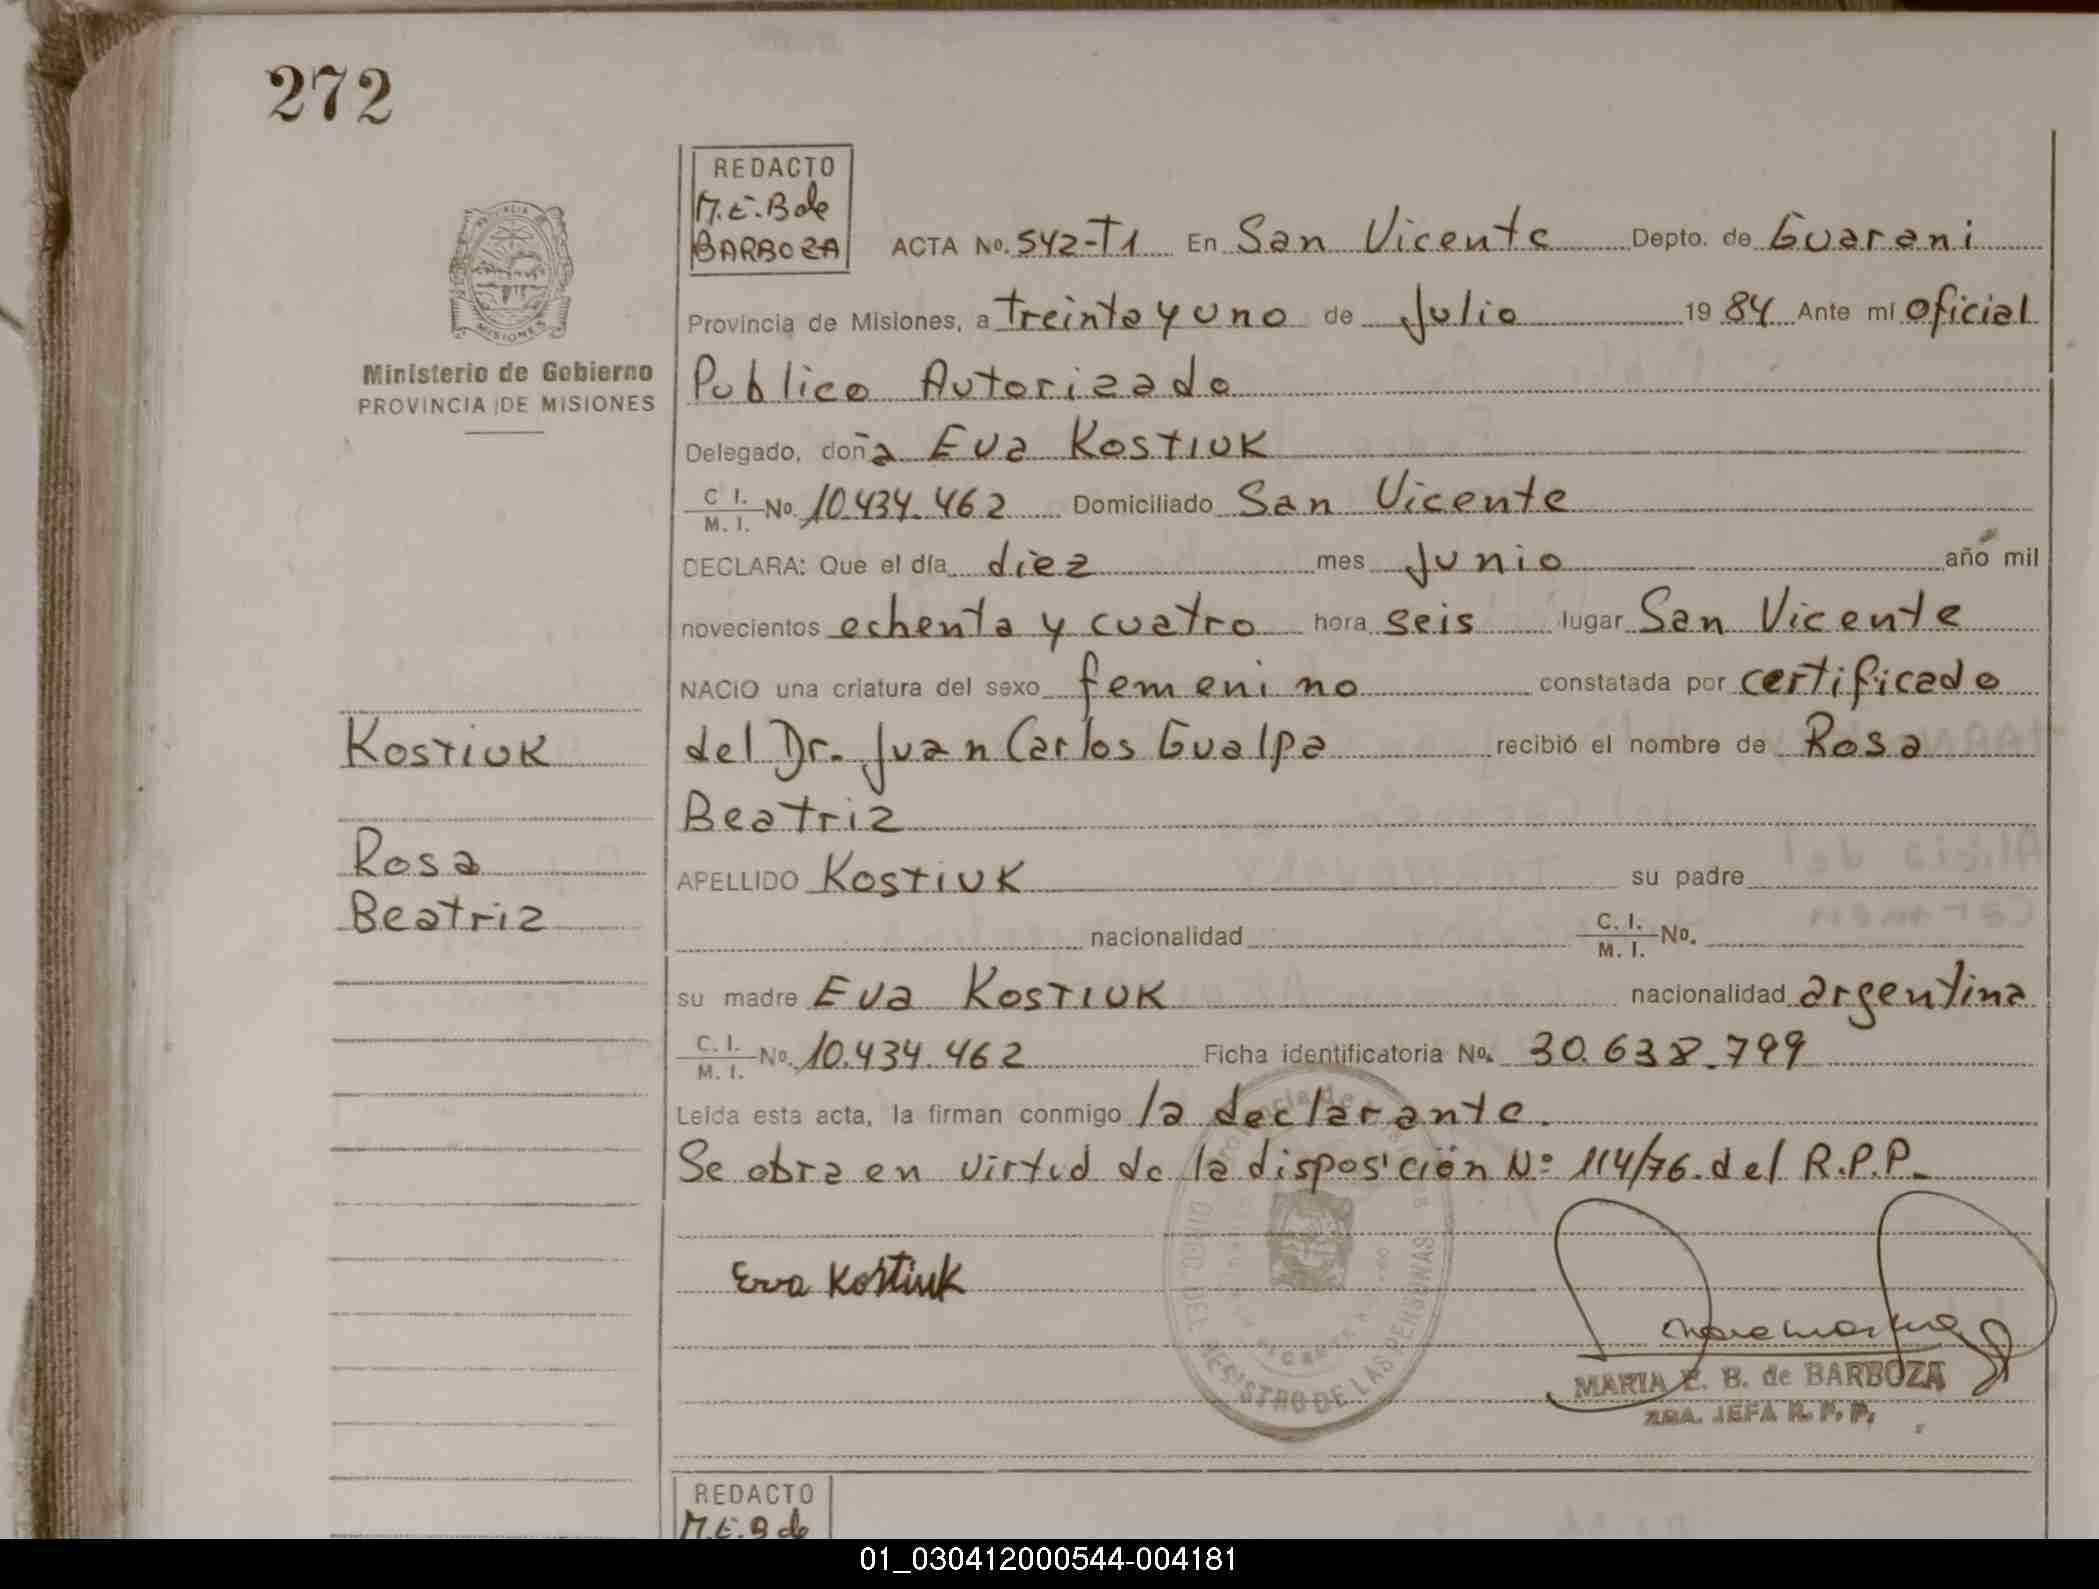 272
REDACTO
M.E.B de
BARBOZA
ACTA No. 542-T1 En San Vicente Depto. de Guarani
PROVINCIA DE
MISIONES
Provincia de Misiones, a treinta y uno de Julio 1984 Ante mí Oficial
Ministerio de Gobierno
PROVINCIA DE MISIONES
Publico Autorizado
Delegado, doña Eva Kostiuk
C I. / M. I. No. 10.434.462 Domiciliado San Vicente
DECLARA: Que el día diez mes Junio año mil
novecientos ochenta y cuatro hora seis lugar San Vicente
NACIO una criatura del sexo femenino constatada por certificado
Kostiuk
del Dr. Juan Carlos Gualpa recibió el nombre de Rosa
Beatriz
Rosa
Beatriz
APELLIDO Kostiuk su padre
nacionalidad C. I. / M. I. No.
su madre Eva Kostiuk nacionalidad argentina
C. I. / M. I. No. 10.434.462 Ficha identificatoria No. 30.638.799
Leída esta acta, la firman conmigo la declarante.
Se obra en virtud de la disposición Nº 114/76 del R.P.P.
Eva Kostiuk
Provincia de
DIREC. DEL REGISTRO DE LAS PERSONAS
MARIA E. B. de BARBOZA
JEFA R. P. P.
REDACTO
M.E.B de
01_030412000544-004181